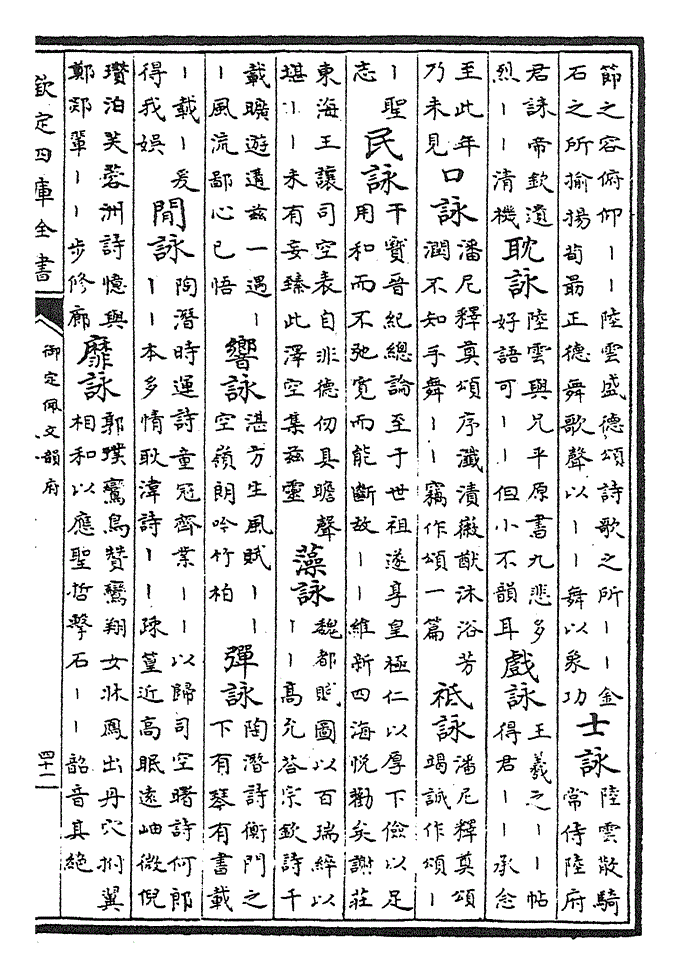 節之容俯仰丨丨陸雲盛德頌詩歌之所丨丨金
石之所揄揚荀勗正德舞歌聲以丨丨舞以象功
士詠
陸雲散騎
常侍陸府
君誄帝欽遺
烈丨丨清機
耽詠
陸雲與兄平原書九悲多
好語可丨丨但小不韻耳
戲詠
王羲之丨丨帖
得君丨丨承念
至此年
乃未見
口詠
潘尼釋奠頌序瀸漬徽猷沐浴芳
潤不知手舞丨丨竊作頌一篇
祗詠
潘尼釋奠頌
竭誠作頌丨
丨聖
志
民詠
干寶晉紀總論至于世祖遂享皇極仁以厚下儉以足
用和而不弛寬而能斷故丨丨維新四海悅勸矣謝莊
東海王讓司空表自非德仞具瞻聲
堪丨丨未有妄臻此澤空集茲靈
藻詠
魏都賦圖以百瑞綷以
丨丨高允答宗欽詩千
載曠遊遘茲一遇丨
丨風流鄙心已悟
響詠
湛方生風賦丨丨
空嶺朗吟竹柏
彈詠
陶潛詩衡門之
下有琴有書載
丨載丨爰
得我娛
閒詠
陶潛時運詩童冠齊業丨丨以歸司空曙詩何郎
丨丨本多情耿湋詩丨丨疎篁近高眠遠岫微倪
瓚泊芙蓉洲詩憶與
鄭郊輩丨丨步修廊
靡詠
郭璞鸞鳥贊鸞翔女牀鳳出丹穴拊翼
相和以應聖哲擊石丨丨韶音其絕
欽定四庫全書
御定佩文韻府
四十二